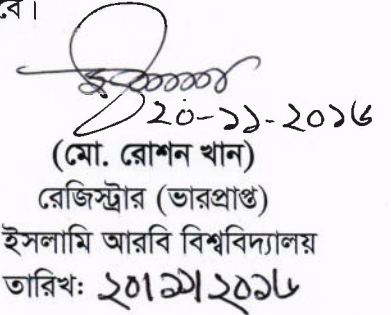 বে।
২০-১১-২০১৬
(মো. রোশন খান)
রেজিস্ট্রার (ভারপ্রাপ্ত)
ইসলামি আরবি বিশ্ববিদ্যালয়
তারিখঃ ২০/১১/২০১৬